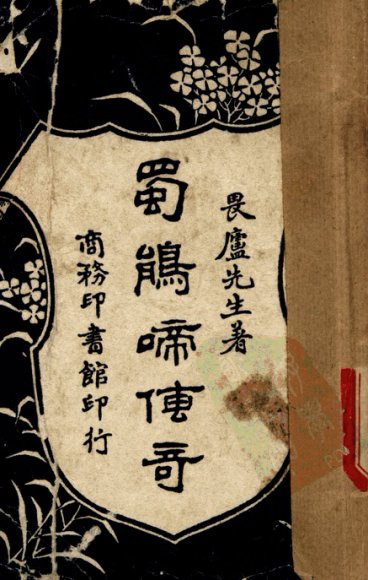 畏廬先生著
蜀鵑啼傳奇
商務印書館印行